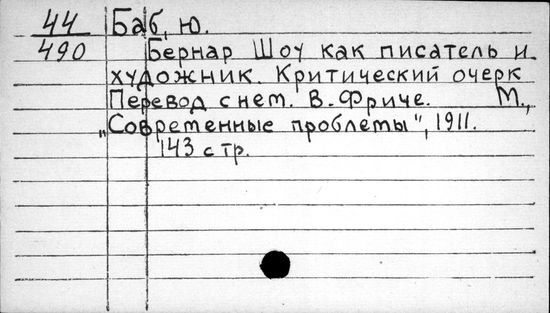 44 Баб, Ю.
490 Бернар Шоу как писатель и
художник. Критический очерк
Перевод с нем. В. Фриче. М.,
„Современные проблемы", 1911.
143 стр.